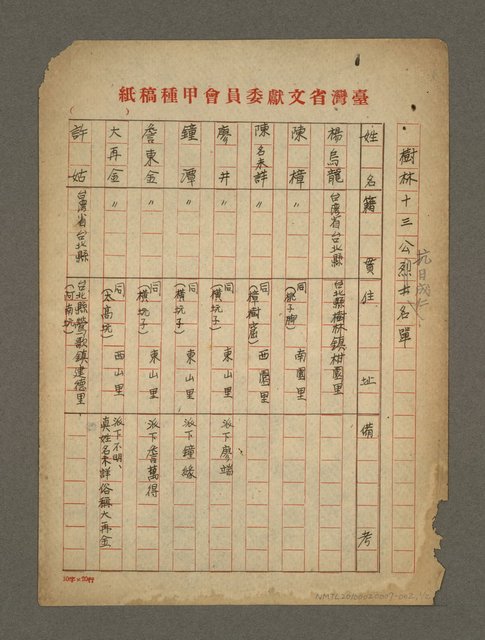 臺灣省文獻委員會甲種稿紙
樹林十三公烈士名單
抗日成仁
姓名 籍貫 住址 備考
楊烏龍 台灣省台北縣 台北縣樹林鎮柑園里
陳樟 〃 同 南園里
陳名未詳 〃 同 西園里 (樟樹窟)
廖井 〃 同 東山里 (橫坑子) 派下廖端
鐘潭 〃 同 東山里 (橫坑子) 派下鐘緣
詹東金 〃 同 東山里 (橫坑子) 派下詹萬得
大再金 〃 同 西山里 (大高坑) 派下不明、真姓名未詳俗稱大再金
許姑 台灣省台北縣 台北縣鶯歌鎮建德里 (阿南坑)
NMTL20100020007-002